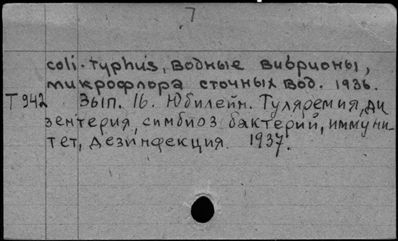 7
coli-typhus, водные вибрионы,
микрофлора сточных вод. 1936.
Т942 Вып. 16. Юбилейн. Туляремия, ди
зентерия, симбиоз бактерий, иммуни-
тет, дезинфекция. 1937.